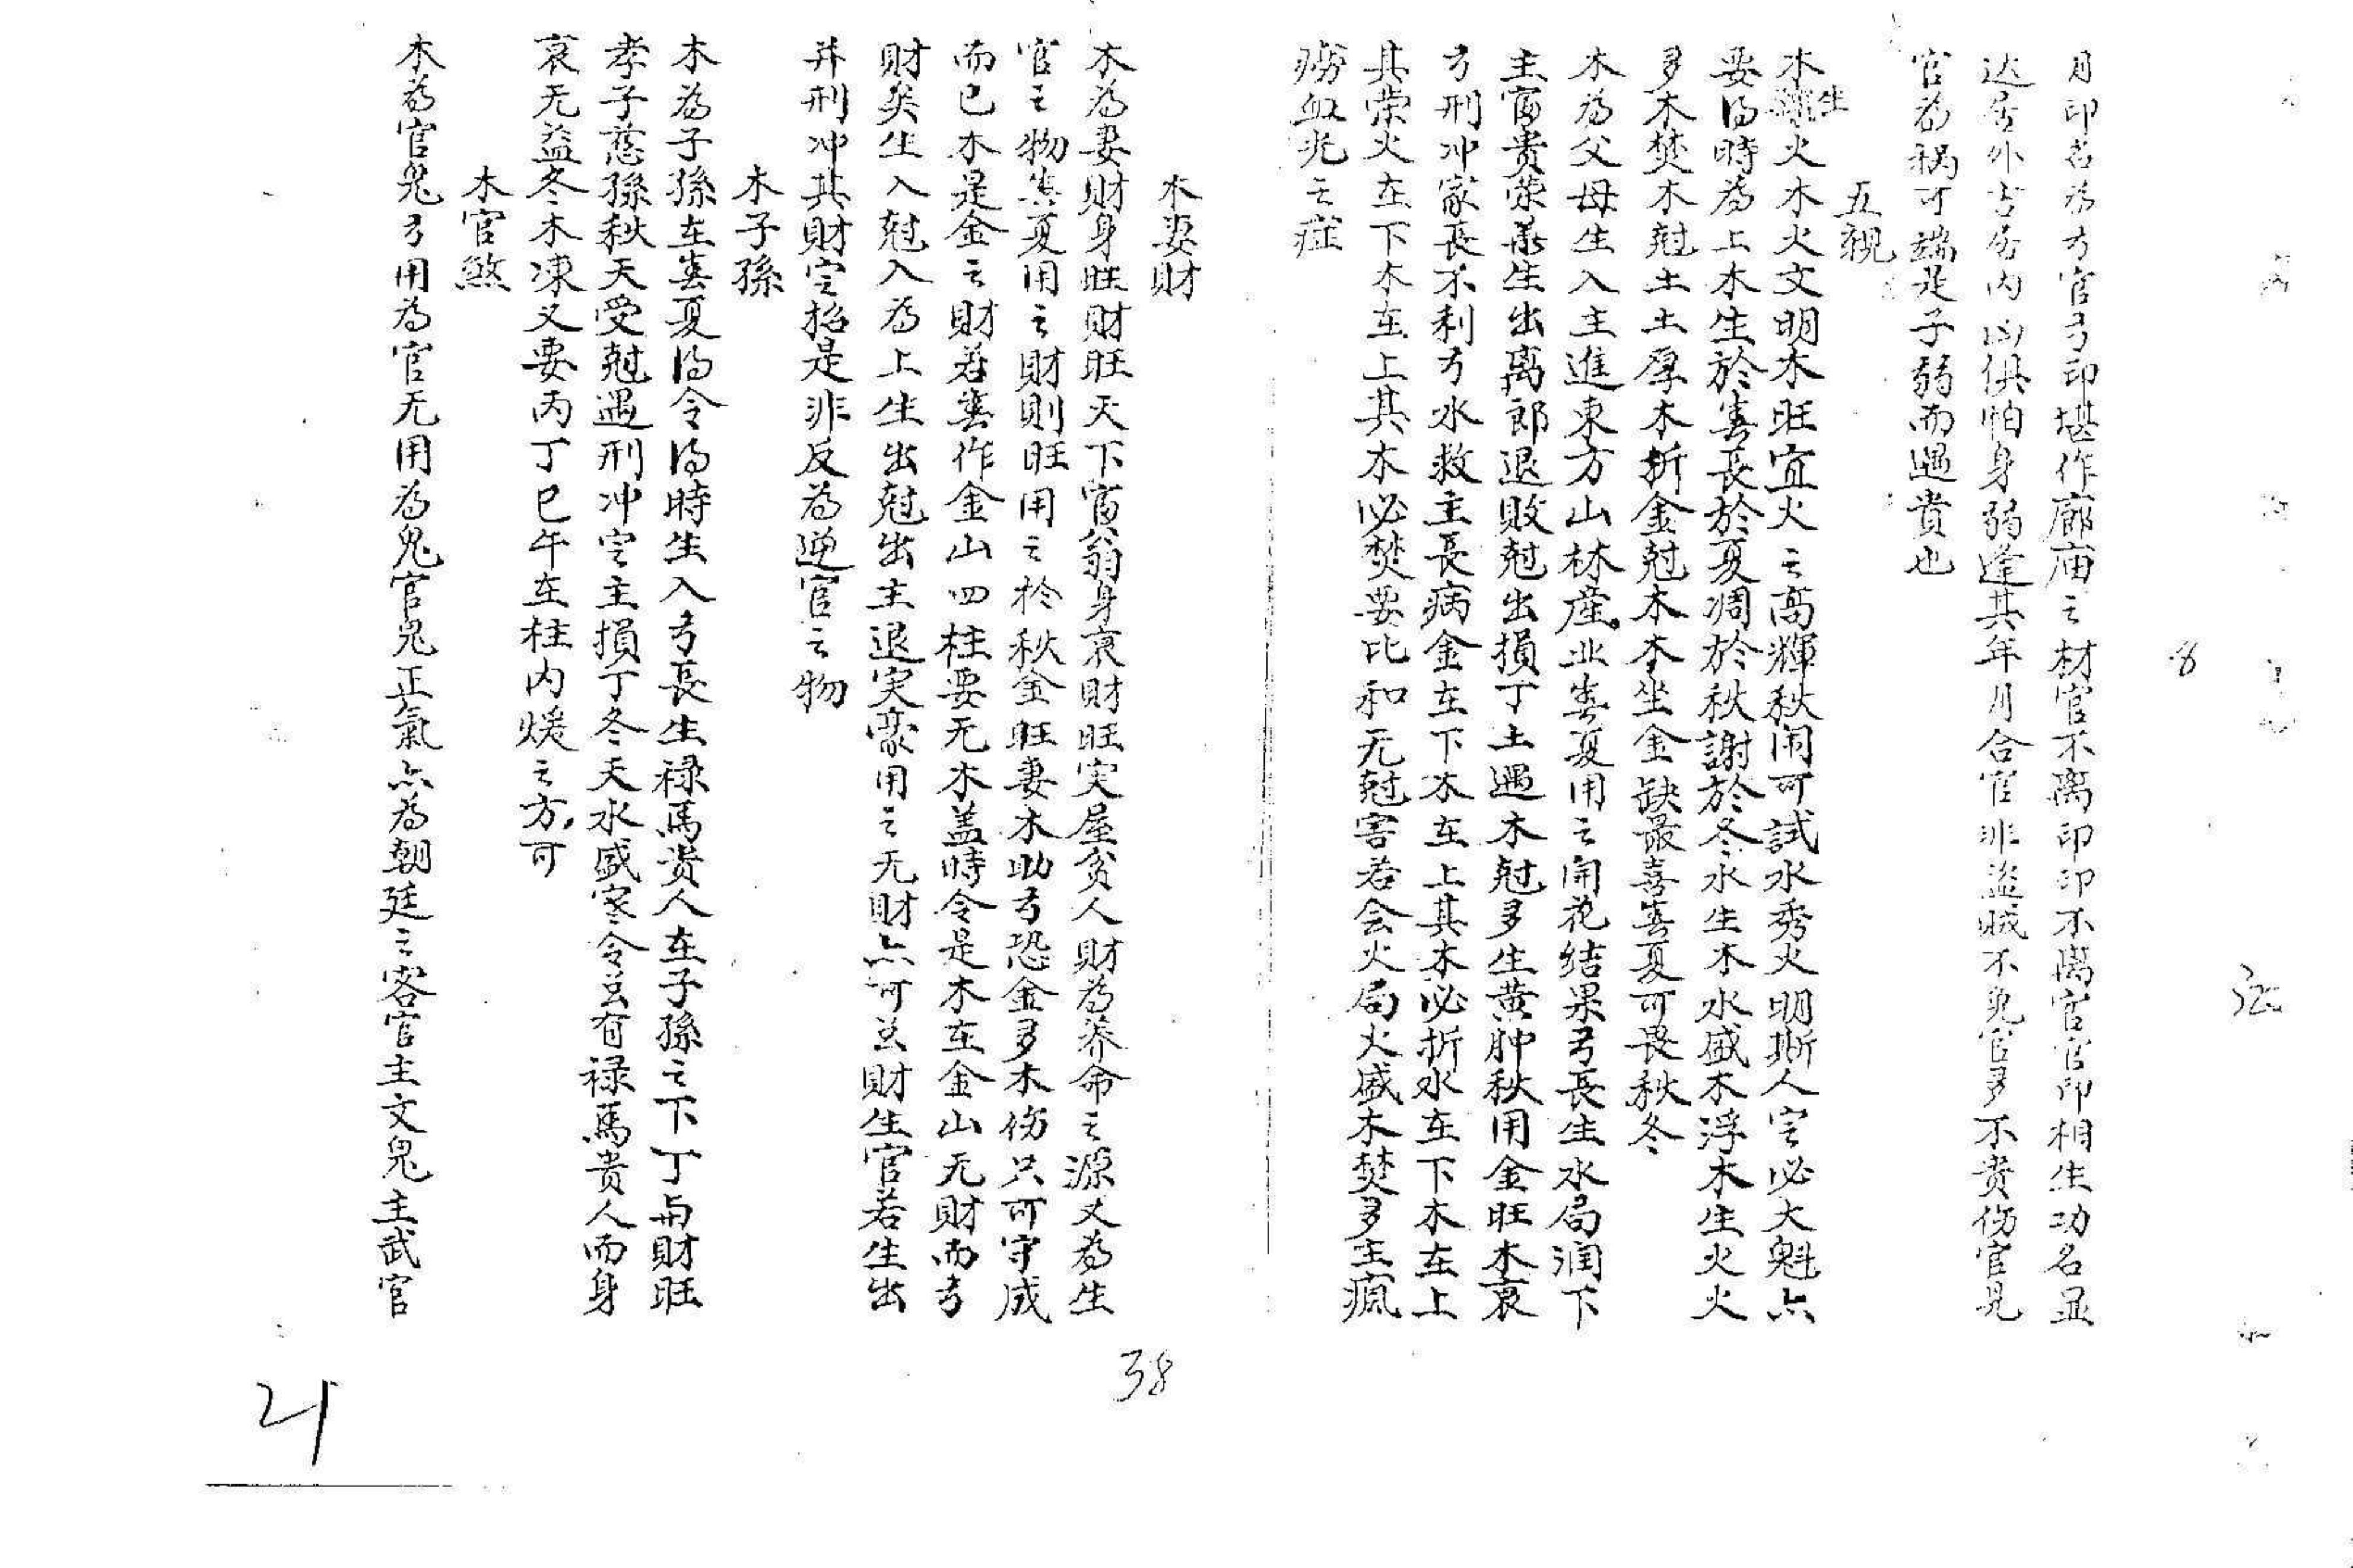 8
月印名为方官弓印堪作廊庙之材官不离印印不离官官印相生功名显
达居外吉居内凶俱怕身弱逢其年月合官非盗贼不免官多不贵伤官見
官為祸可端是子弱而遇贵也
五親
木生火木火文明木旺宜火之高輝秋闱可試水秀火明斯人定必大魁亦
要得時為上木生於春長於夏凋於秋謝於冬水生木水盛木浮木生火火
多木焚木尅土土厚木折金尅木木坐金缺最喜春夏可畏秋冬
木為父母生入主進東方山林産业春夏用之開花结果弓長生水局润下
主富贵荣華生出离郎退敗尅出損丁土遇木尅多生黄肿秋用金旺木衰
弓刑冲家長不利弓水救主長病金在下木在上其木必折水在下木在上
其荣火在下木在上其木必焚要比和无尅害若会火局火盛木焚多主瘋
痨血光之症
木妻財
木為妻財身旺財旺天下富翁身衰財旺实屋贫人財為养命之源又為生
官之物春夏用之財則旺用之於秋金旺妻木助弓恐金多木伤只可守成
而已木是金之財若春作金山四柱要无木盖時令是木在金山无財而弓
財矣生入尅入為上生出尅出主退实豪用之无財亦可玄財生官若生出
并刑冲其財定招是非反為逆官之物
木子孫
木為子孫在春夏得令得時生入弓長生禄馬贵人在子孫之下丁与財旺
孝子慈孫秋天受尅遇刑冲定主損丁冬天水盛寒令玄有禄馬贵人而身
衰无益冬木凍又要丙丁巳午在柱内煖之方可
木官煞
木為官鬼弓用為官无用為鬼官鬼正氣亦為朝廷之客官主文鬼主武官
38
21